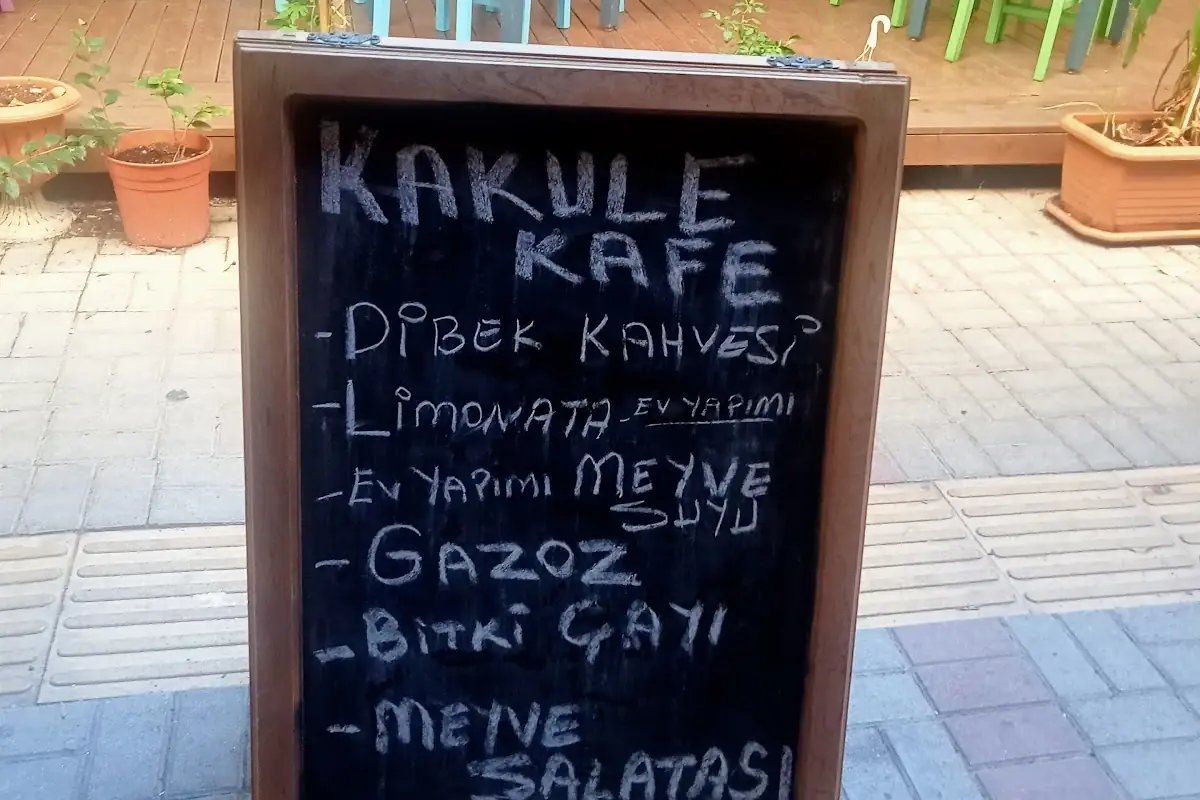 KAKULE
KAFE
- DİBEK KAHVESİ
- LİMONATA - EV YAPIMI
- EV YAPIMI MEYVE
SUYU
- GAZOZ
- BİTKİ ÇAYI
- MEYVE
SALATASI